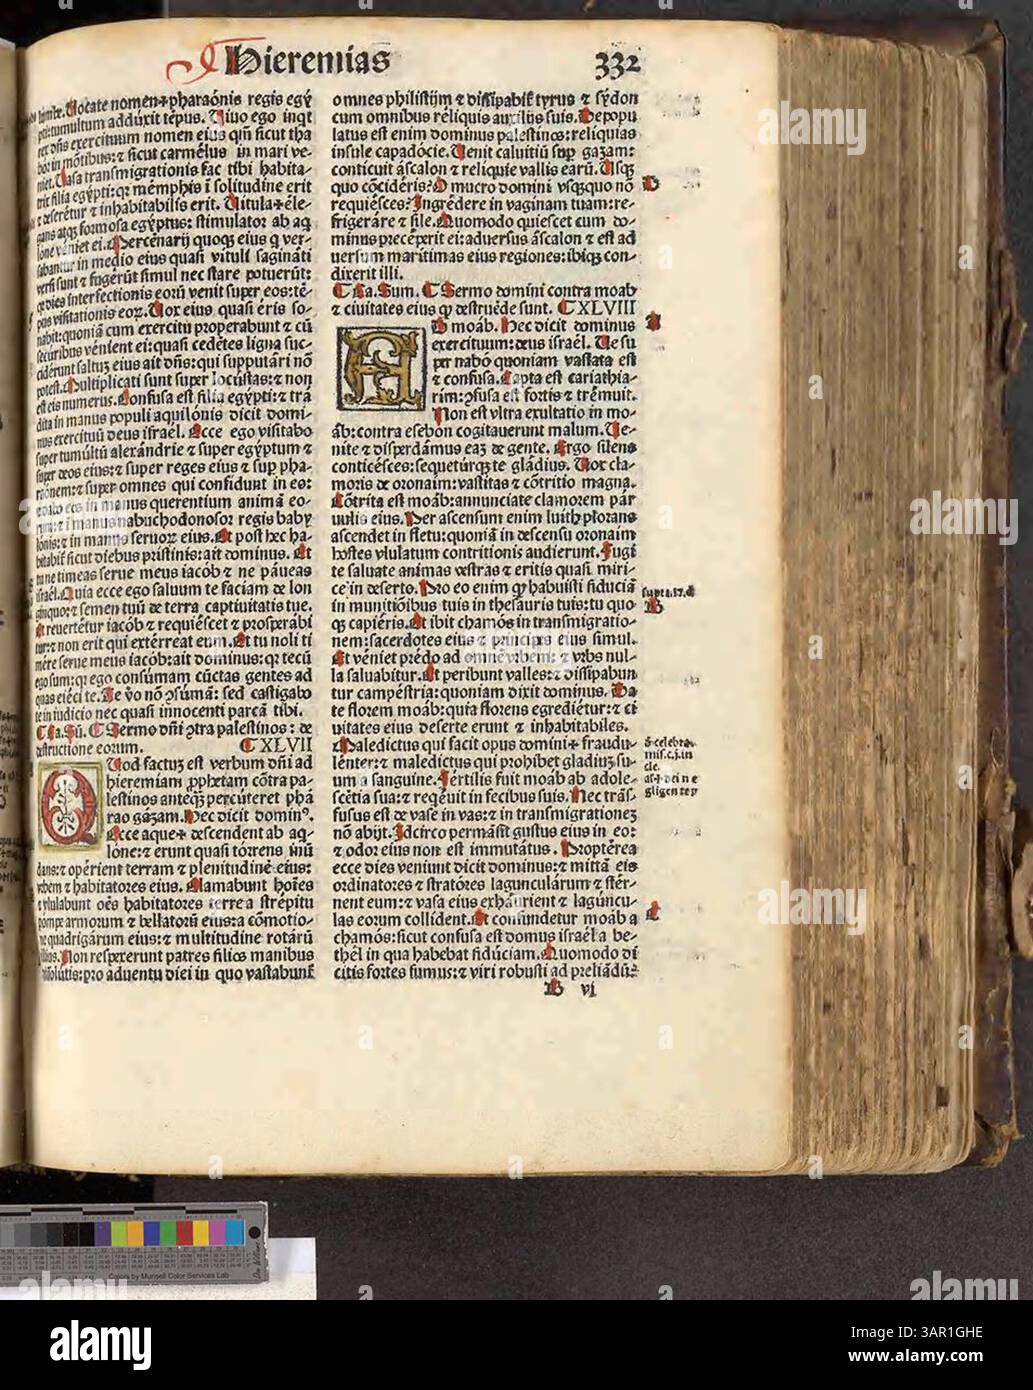 Hieremias 332
tumultum adduxit tẽpus. Uiuo ego inqt
rex dñs exercituum nomen eius qm̃ sicut tha
bor in mõtibus: ⁊ sicut carmẽlus in mari ve-
niet. Uasa transmigrationis fac tibi habita-
trix filia egypti: qꝛ mẽmphis ĩ solitudine erit
⁊ deserẽtur ⁊ inhabitabilis erit. Uitula ele-
gans atqꝫ formosa egyptus: stimulator ab aq
lõne vẽniet ei. Mercẽnarij quoqꝫ eius q̃ ver-
sabantur in medio eius quasi vituli saginãti
versi sunt ⁊ fugerũt simul nec stare potuerũt:
qꝛ dies interfectionis eorũ venit super eos: tẽ-
pus visitationis eoꝝ. Uox eius quasi ẽris so-
nabit: quoniã cum exercitu properabunt ⁊ cũ
securibus vẽnient ei: quasi cedẽtes ligna suc-
cidẽrunt saltuꝫ eius ait dñs: qui supputãri nõ
potest. Multiplicati sunt super locũstas: ⁊ non
est eis numerus. Confusa est filia egỹpti: ⁊ tra
dita in manus populi aquilõnis dicit domi-
nus exercituũ deus israẽl. Ecce ego visitabo
super tumũltũ alexãndrie ⁊ super egỹptum ⁊
super deos eius: ⁊ super reges eius ⁊ suꝑ pha-
raõnem: ⁊ super omnes qui confidunt in eo:
⁊ dabo eos in manus querentium animã eo-
rum: ⁊ ĩ manus nabuchodonosor regis baby
lõnis: ⁊ in manus seruoꝝ eius. Et post hec ha-
bitabit̃ sicut diebus pristinis: ait dominus. Et
tu ne timeas serue meus iacõb ⁊ ne pãueas
israẽl. Quia ecce ego saluum te faciam de lon
ginquo: ⁊ semen tuũ de terra captiuitatis tue.
Et reuertẽtur iacõb ⁊ requiẽscet ⁊ prosperabi
tur: ⁊ non erit qui extẽrreat eum. Et tu noli ti
mẽre serue meus iacõb: ait dominus: qꝛ tecũ
ego sum: qꝛ ego consũmam cũctas gentes ad
quas eiẽci te. Te ṽo nõ ꝯsũmã: sed castigabo
te in iudicio nec quasi innocenti parcã tibi.
Ca. Sũ. Sermo dñi ꝯtra palestinos: de
destructione eorum. XLVII
Quod factuꝫ est verbum dñi ad
hieremiam ꝓphẽtam cõtra pa-
lestinos anteqꝫ percũteret phã
rao gazam. Hec dicit dominꝰ.
Ecce aque descendent ab aq-
lõne: ⁊ erunt quasi tõrrens inũ
dans: ⁊ opẽrient terram ⁊ plenitudinẽ eius:
vrbem ⁊ habitatores eius. Clamabunt hoĩes
⁊ ylulabunt oẽs habitatores terre a strẽpitu
pompe armorum ⁊ bellatorũ eius: a cõmotio-
ne quadrigãrum eius: ⁊ multitudine rotãrũ
illius. Non respexerunt patres filios manibus
dissolũtis: pro aduentu diei in quo vastabunt̃
omnes philistĩjm ⁊ dissipabit̃ tyrus ⁊ sydon
cum omnibus rẽliquis auxilijs suis. Depopu
latus est enim dominus palestinos: reliquias
insule capadõcie. Uenit caluitiũ suꝑ gazam:
conticuit ãscalon ⁊ reliquie vallis earũ. Usqꝫ
quo cõcidẽris? O mucro domini vsqꝫquo nõ
requiẽsces? Ingrẽdere in vaginam tuam: re-
frigerãre ⁊ sile. Quomodo quiescet cum do-
minus precẽperit ei: aduersus ãscalon ⁊ est ad
uersum maritimas eius regiones: ibiqꝫ con-
dixerit illi.
Ca. Sum. Sermo domini contra moab
⁊ ciuitates eius ꝙ destruẽde sunt. XLVIII
AD moãb. Hec dicit dominus
exercituum: deus israẽl. Ue su
per nabõ quoniam vastata est
⁊ confusa. Capta est cariathia-
rim: ꝯfusa est fortis ⁊ trẽmuit.
Non est vltra exultatio in mo-
ãb: contra esebon cogitauerunt malum. Ue-
nite ⁊ disperdãmus eaꝫ de gente. Ergo silens
conticẽsces: sequetũrqꝫ te glãdius. Uox cla-
moris de oronaim: vastitas ⁊ cõtritio magna.
Cõtrita est moãb: annunciate clamorem pãr
uulis eius. Per ascensum enim luith plorans
ascendet in fletu: quoniã in descensu oronaim
hostes vlulatum contritionis audierunt. Fugi
te saluate animas vestras ⁊ eritis quasi miri-
ce in deserto. Pro eo enim ꝙ habuisti fiduciã
in munitiõibus tuis in thesauris tuis: tu quo
qꝫ capiẽris. Et ibit chamõs in transmigratio-
nem: sacerdotes eius ⁊ principes eius simul.
Et vẽniet prẽdo ad omnẽ vrbem: ⁊ vrbs nul-
la saluabitur. Et peribunt valles: ⁊ dissipabun
tur campẽstria: quoniam dixit dominus. Da
te florem moãb: quia florens egrediẽtur: ⁊ ci
uitates eius deserte erunt ⁊ inhabitabiles.
Maledictus qui facit opus domini fraudu-
lẽnter: ⁊ maledictus qui prohibet gladiuꝫ su-
um a sanguine. Fertilis fuit moab ab adole-
scẽtia sua: ⁊ reqẽuit in fecibus suis. Nec trãs-
fusus est de vase in vas: ⁊ in transmigrationeꝫ
nõ abijt. Idcirco permãsit gustus eius in eo:
⁊ odor eius non est immutãtus. Proptẽrea
ecce dies veniunt dicit dominus: ⁊ mittã eis
ordinatores ⁊ stratõres lagunculãrum ⁊ stẽr-
nent eum: ⁊ vasa eius exhãurient ⁊ lagũncu-
las eorum collident. Et confundetur moãb a
chamõs: sicut confusa est domus israẽl a be-
thẽl in qua habebat fidũciam. Quomodo di
citis fortes sumus: ⁊ viri robusti ad preliãdũ:
B vj
D
A
supra.17.d
B
C
Colors by Munsell Color Services Lab
alamy
Image ID: 3AR1GHE
www.alamy.com